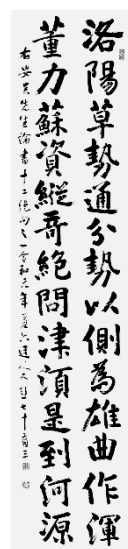 洛陽草勢通分勢以側為雄曲作渾
董力蘇資縱奇絕問津須是到何源
右安吳先生論書十二絕句之一令和元年夏七十有三